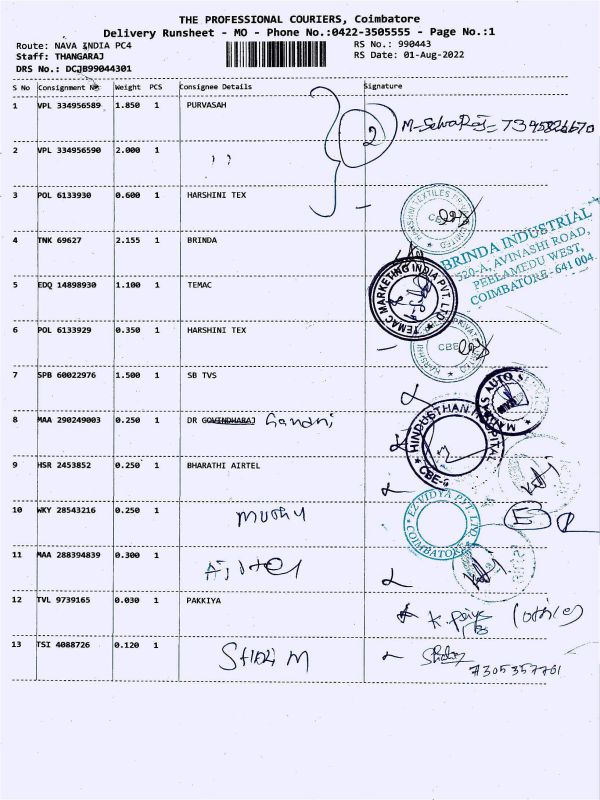 THE PROFESSIONAL COURIERS, Coimbatore
Delivery Runsheet - MO - Phone No.:0422-3505555 - Page No.:1
Route: NAVA INDIA PC4 RS No.: 990443
Staff: THANGARAJ RS Date: 01-Aug-2022
DRS No.: DCJB99044301
S No Consignment No. Weight PCS Consignee Details Signature
1 VPL 334956589 1.850 1 PURVASAH 2
2 VPL 334956590 2.000 1 ,,
3 POL 6133930 0.600 1 HARSHINI TEX
HARSHINI TEXTILES PRIVATE LIMITED CBE
4 TNK 69627 2.155 1 BRINDA
BRINDA INDUSTRIAL
520-A, AVINASHI ROAD,
PEELAMEDU WEST,
COIMBATORE - 641 004.
5 EDQ 14898930 1.100 1 TEMAC
TEMAC MARKETING INDIA PVT. LTD
6 POL 6133929 0.350 1 HARSHINI TEX
CBE
7 SPB 60022976 1.500 1 SB TVS
8 MAA 290249003 0.250 1 DR GOVINDHARAJ Gandhi
HINDUSTHAN HOSPITAL CBE
9 HSR 2453852 0.250 1 BHARATHI AIRTEL
10 WKY 28543216 0.250 1
EZ-VIDYA PVT. LTD. COIMBATORE
11 MAA 288394839 0.300 1
12 TVL 9739165 0.030 1 PAKKIYA
13 TSI 4088726 0.120 1
7305357701